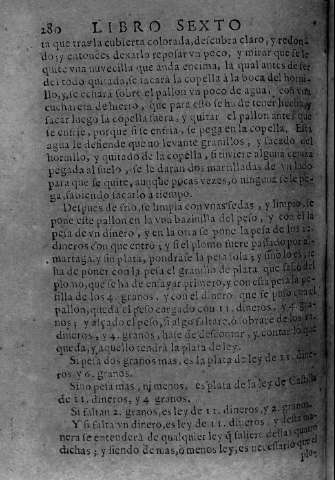 280 LIBRO SEXTO
ta que tras la cubierta colorada, descubra claro, y redon-
do; y entonces dexarlo reposar vn poco, y mirar que se le
quite vna nuvecilla que anda encima, la qual antes de ser
del todo quitada, se sacará la copella à la boca del horni-
llo, y se echará sobre el pallon vn poco de agua, con vna
cuchareta de huero, que para esto se ha de tener hecha, y
sacar luego la copella fuera, y quitar el pallon antes que
se enfrie, porque si se enfria, se pega en la copella. Esta
agua le defiende que no levante granillos, y sacado del
hornillo, y quitado de la copella, si tuviere alguna ceniza
pegada al suelo, se le daràn dos martilladas de vn lado
para que se quite, aunque pocas vezes, ò ninguna se le pe-
ga, sabiendo sacarlo a tiempo.
Despues de frio, se limpia con vnas sedas, y limpio, se
pone este pallon en la vna bazinilla del peso, y con él la
pesa de vn dinero, y en la otra se pone la pesa de los 12.
dineros con que entrò; y si el plomo fuere passado por al-
martaga, y sin plata, pondrase la pesa sola; y sino lo es, se
ha de poner con la pesa el granillo de plata que saliò del
plomo, que se ha de ensayar primero, y con esta pesa la pe-
silla de los 4. granos, y con el dinero que se puso con el
pallon, queda el peso cargado con 11. dineros, y 4. gra-
nos; y alçado el peso, si algo faltare, ò sobrare de los 11.
dineros, y 4. granos, hase de descontar, y contar lo que
queda, y aquello tendrá la plata de ley.
Si pesa dos granos mas, es la plata de ley de 11. dine-
ros y 6. granos.
Si no pesa mas, ni menos, es plata de la ley de Castilla
de 11. dineros, y 4 granos.
Si faltan 2. granos, es ley de 11. dineros, y 2. granos.
Y si falta vn dinero, es ley de 11. dineros, y desta ma-
nera se entenderà de qualquier ley q̃ saliere destas quatro
dichas; y siendo de mas, ò menos ley, es necessario que el